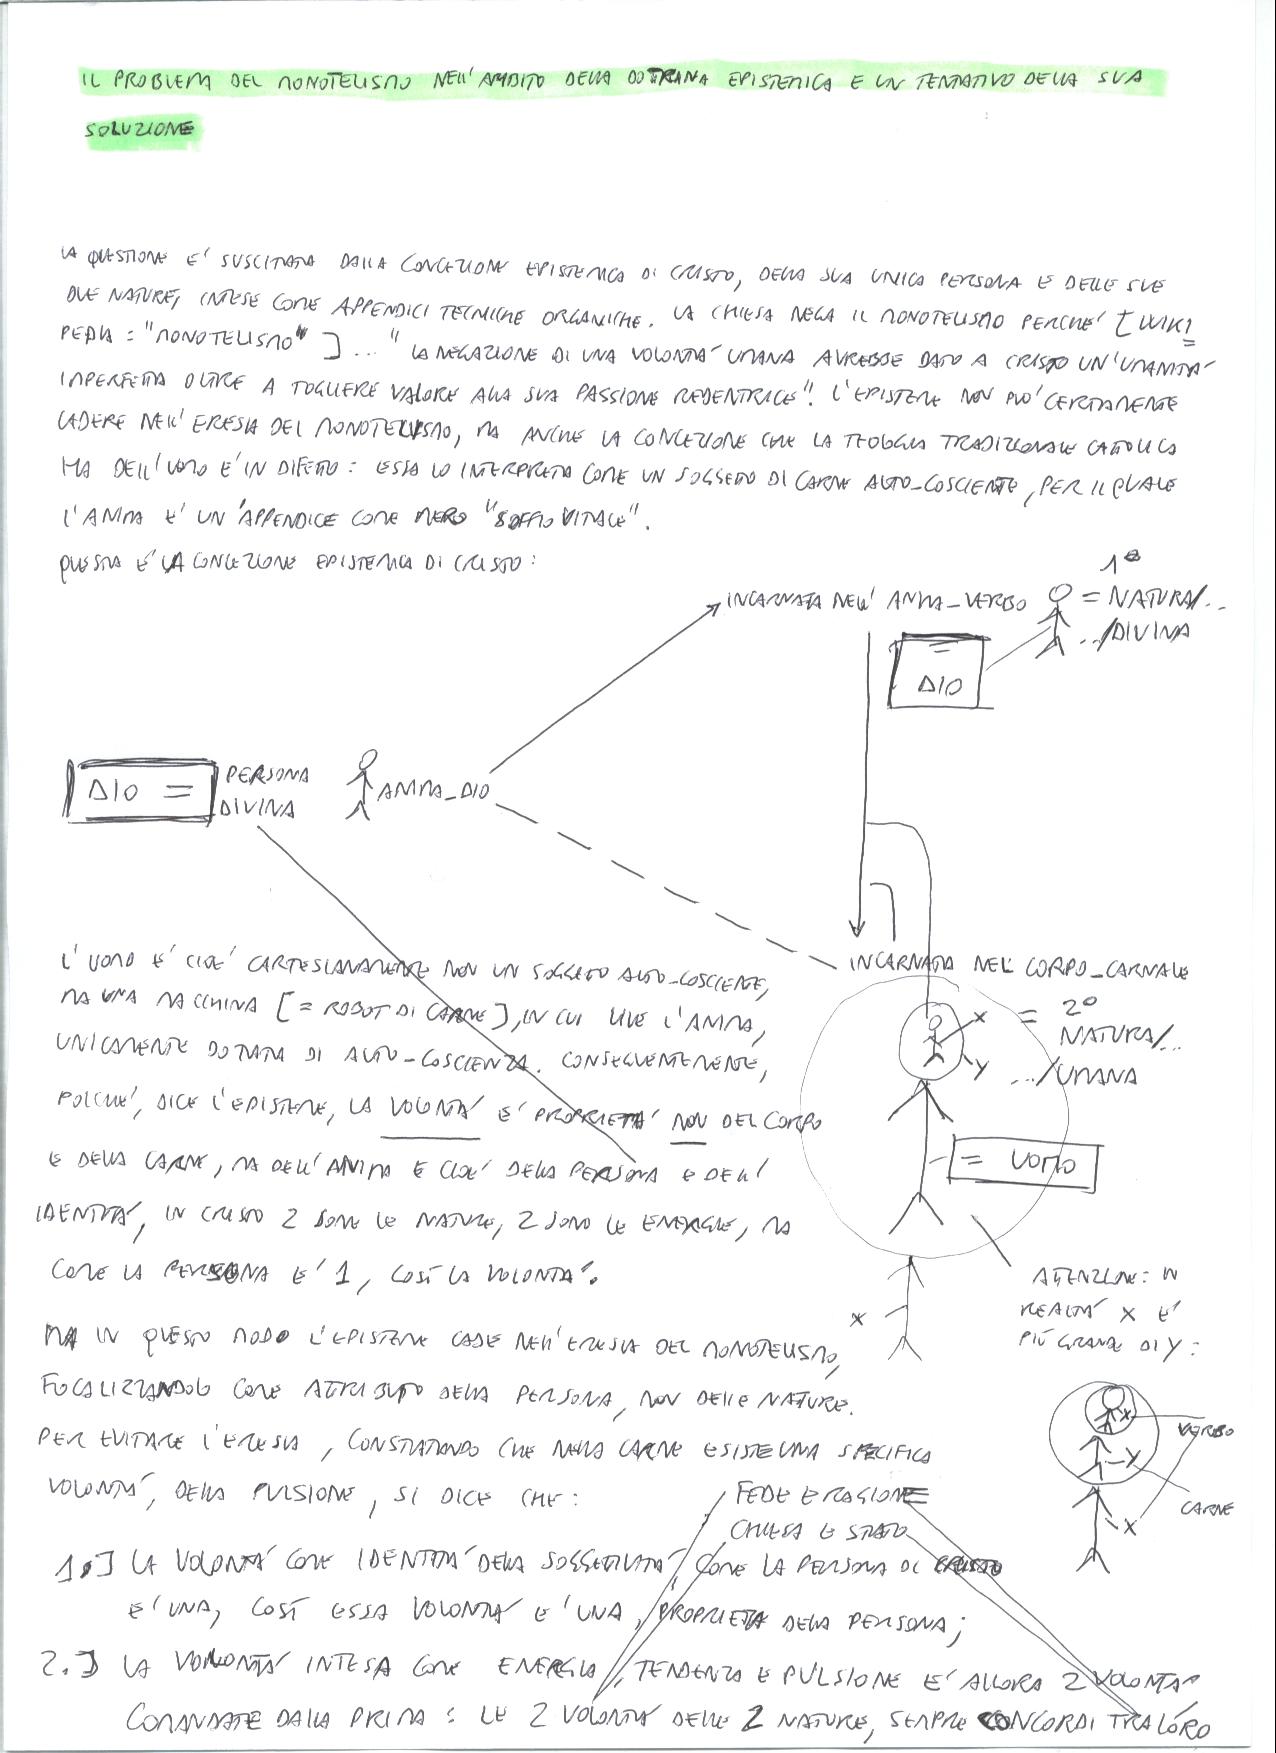 IL PROBLEMA DEL MONOTELISMO NELL'AMBITO DELLA DOTTRINA EPISTEMICA E UN TENTATIVO DELLA SUA
SOLUZIONE
LA QUESTIONE E' SUSCITATA DALLA CONCEZIONE EPISTEMICA DI CRISTO, DELLA SUA UNICA PERSONA E DELLE SUE
DUE NATURE, INTESE COME APPENDICI TECNICHE ORGANICHE. LA CHIESA NEGA IL MONOTELISMO PERCHE' [WIKI=
PEDIA: "MONOTELISMO"]... "LA NEGAZIONE DI UNA VOLONTA' UMANA AVREBBE DATO A CRISTO UN'UMANITA'
IMPERFETTA OLTRE A TOGLIERE VALORE ALLA SUA PASSIONE REDENTRICE". L'EPISTEME NON PUO' CERTAMENTE
CADERE NELL'ERESIA DEL MONOTELISMO, MA ANCHE LA CONCEZIONE CHE LA TEOLOGIA TRADIZIONALE CATTOLICA
HA DELL'UOMO E' IN DIFETTO: ESSA LO INTERPRETA COME UN SOGGETTO DI CARNE AUTO-COSCIENTE, PER IL QUALE
L'ANIMA E' UN'APPENDICE COME MERO "SOFFIO VITALE".
QUESTA E' LA CONCEZIONE EPISTEMICA DI CRISTO:
INCARNATA NELL'ANIMA_VERBO = 1ª NATURA/...
.../DIVINA
DIO
DIO = PERSONA DIVINA
ANIMA_DIO
INCARNATA NEL CORPO_CARNALE
= 2º
NATURA/...
.../UMANA
X
Y
= UOMO
L'UOMO E' CIOE' CARTESIANAMENTE NON UN SOGGETTO AUTO-COSCIENTE,
MA UNA MACCHINA [= ROBOT DI CARNE], IN CUI VIVE L'ANIMA,
UNICAMENTE DOTATA DI AUTO-COSCIENZA. CONSEGUENTEMENTE,
POICHE', DICE L'EPISTEME, LA VOLONTA' E' PROPRIETA' NON DEL CORPO
E DELLA CARNE, MA DELL'ANIMA E CIOE' DELLA PERSONA E DELL'
IDENTITA', IN CRISTO 2 SONO LE NATURE, 2 SONO LE ENERGIE, MA
COME LA PERSONA E' 1, COSÌ LA VOLONTA'.
X
ATTENZIONE: IN
REALTA' X E'
PIÙ GRANDE DI Y:
MA IN QUESTO MODO L'EPISTEME CADE NELL'ERESIA DEL MONOTELISMO,
FOCALIZZANDOLO COME ATTRIBUTO DELLA PERSONA, NON DELLE NATURE.
PER EVITARE L'ERESIA, CONSTATANDO CHE NELLA CARNE ESISTE UNA SPECIFICA
VOLONTA', DELLA PULSIONE, SI DICE CHE:
X
VERBO
Y
CARNE
X
FEDE E RAGIONE
CHIESA E STATO
1.] LA VOLONTA' COME IDENTITA' DELLA SOGGETTIVITA', COME LA PERSONA DI CRISTO
E' UNA, COSÌ ESSA VOLONTA' E' UNA, PROPRIETA' DELLA PERSONA;
2.] LA VOLONTA' INTESA COME ENERGIA, TENDENZA E PULSIONE E' ALLORA 2 VOLONTA'
COMANDATE DALLA PRIMA: LE 2 VOLONTA' DELLE 2 NATURE, SEMPRE CONCORDI TRA LORO